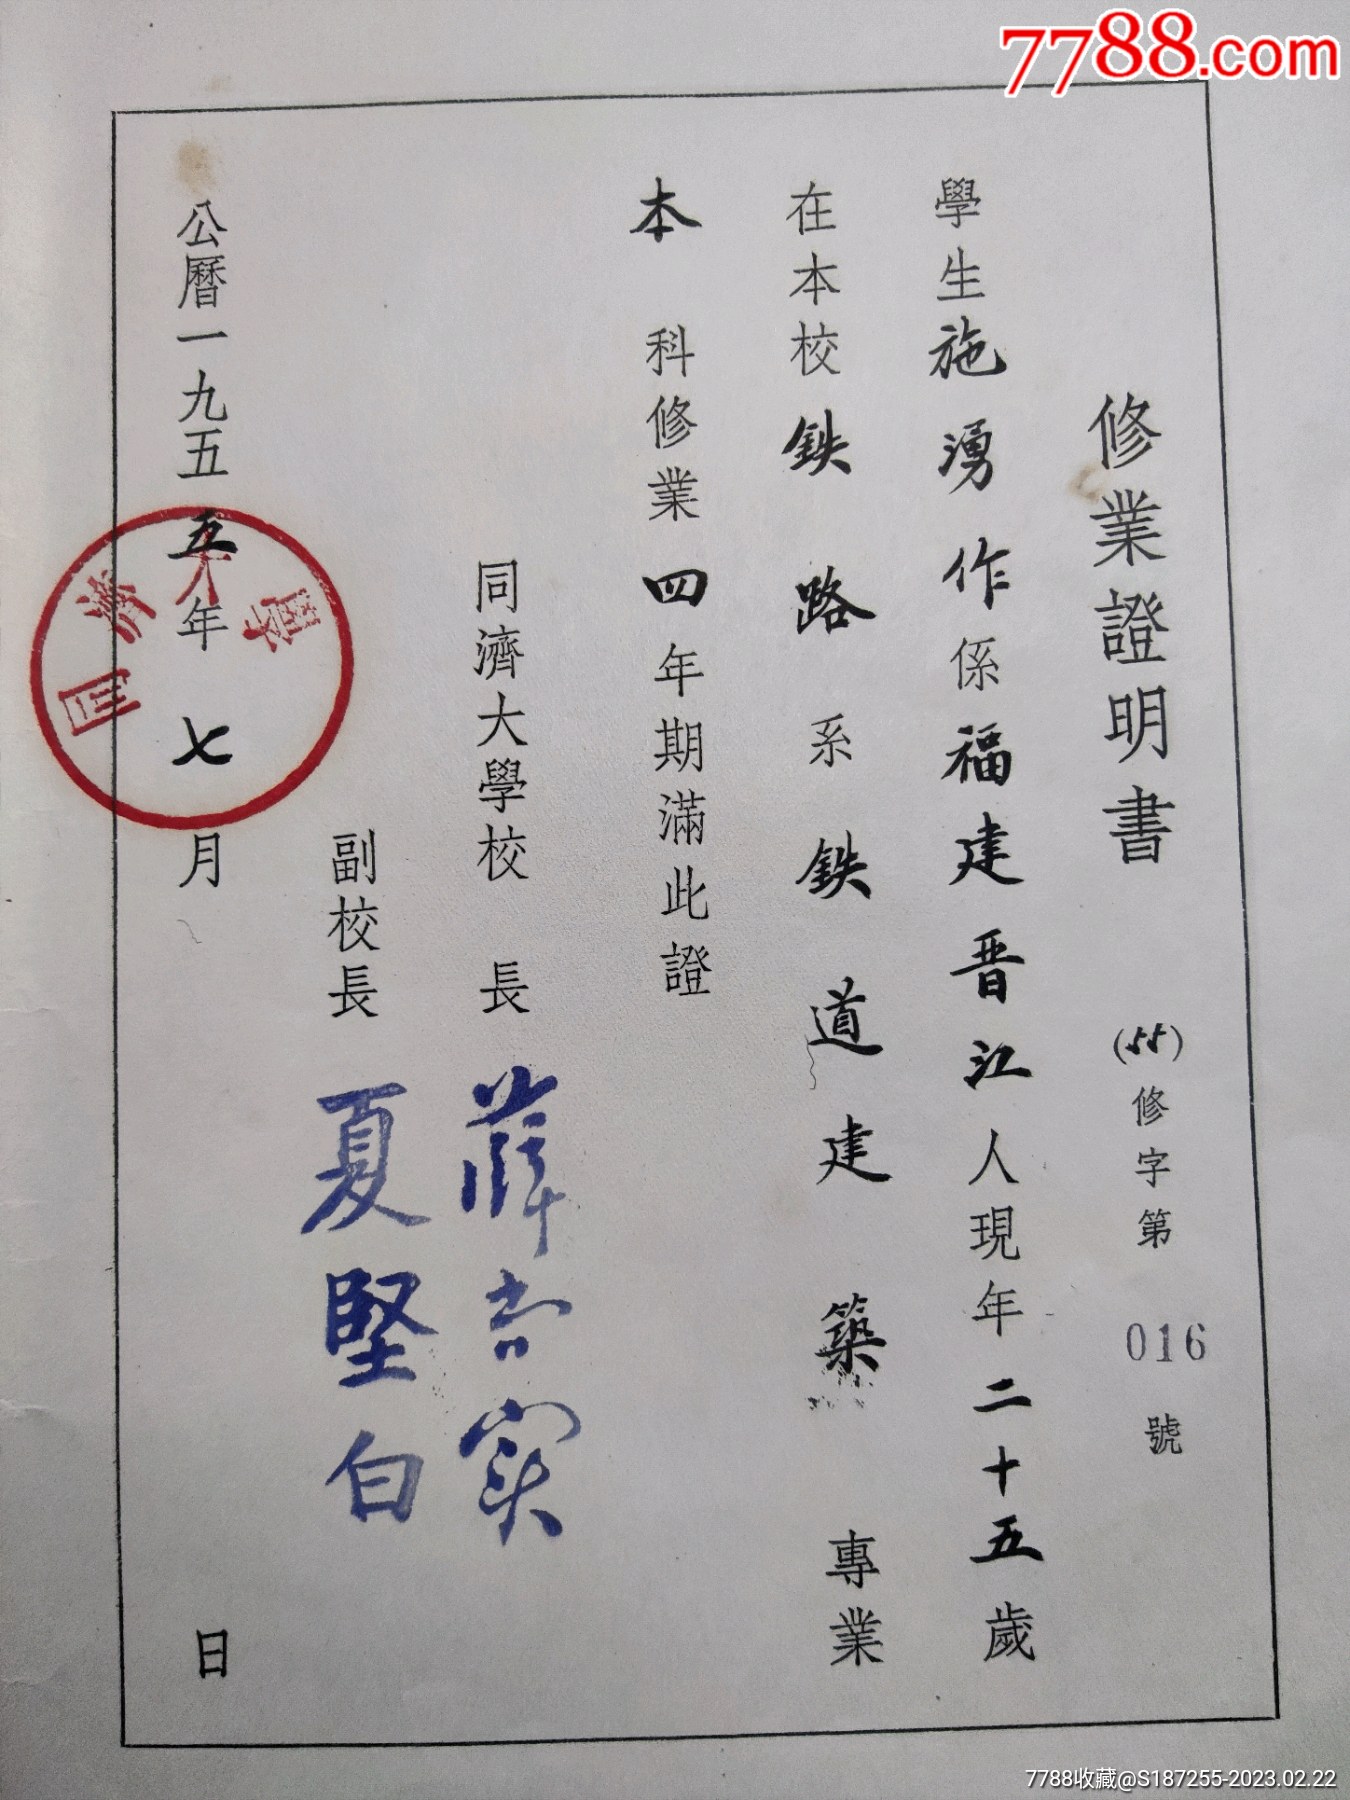 7788.com
修業證明書
(55)修字第 016 號
學生施湧作係福建晋江人現年二十五歲
在本校鉄路系鉄道建築專業
本科修業四年期滿此證
同濟大學校長 薛尚实
副校長 夏堅白
公曆一九五五年七月 日
同濟大學
7788收藏@S187255-2023.02.22